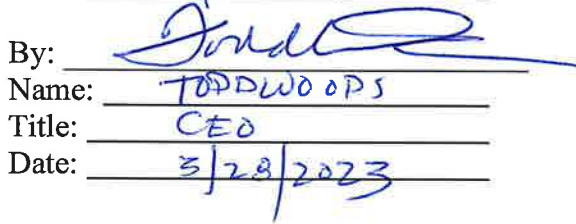 By: Todd
Name: TODD WOODS
Title: CEO
Date: 3/28/2023